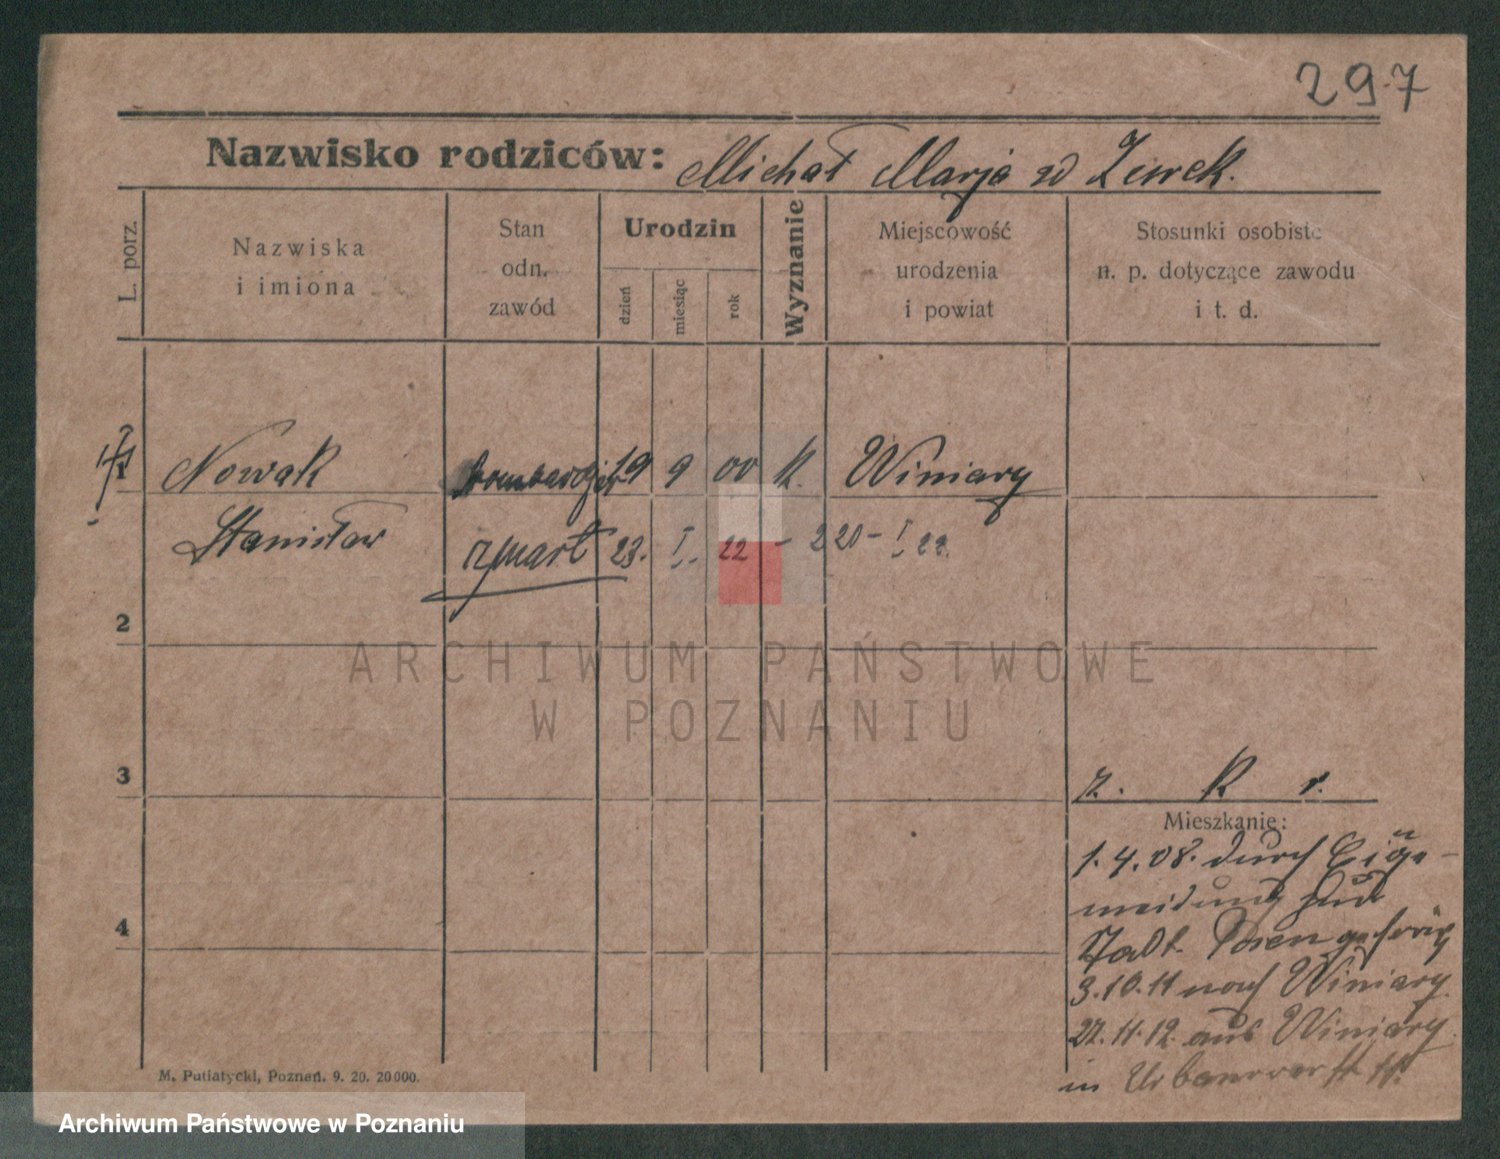 297
Nazwisko rodziców: Michał Marja
L. porz.
Nazwiska
i imiona
Stan
odn.
zawód
Urodzin
dzień
miesiąc
rok
Wyznanie
Miejscowość
urodzenia
i powiat
Stosunki osobiste
n. p. dotyczące zawodu
i t. d.
1 Nowak 19 9 00 k. Winiary
Stanisław zmarł 23. I. 22 - 220 - I
2
ARCHIWUM PAŃSTWOWE
W POZNANIU
3
z. k r.
Mieszkanie:
1.4.08. durch Einge-
meindung zur
Stadt Posen gehörig
4
3.10.11 nach Winiary.
27.11.12. aus Winiary.
in
M. Putiatycki, Poznań. 9. 20. 20000.
Archiwum Państwowe w Poznaniu